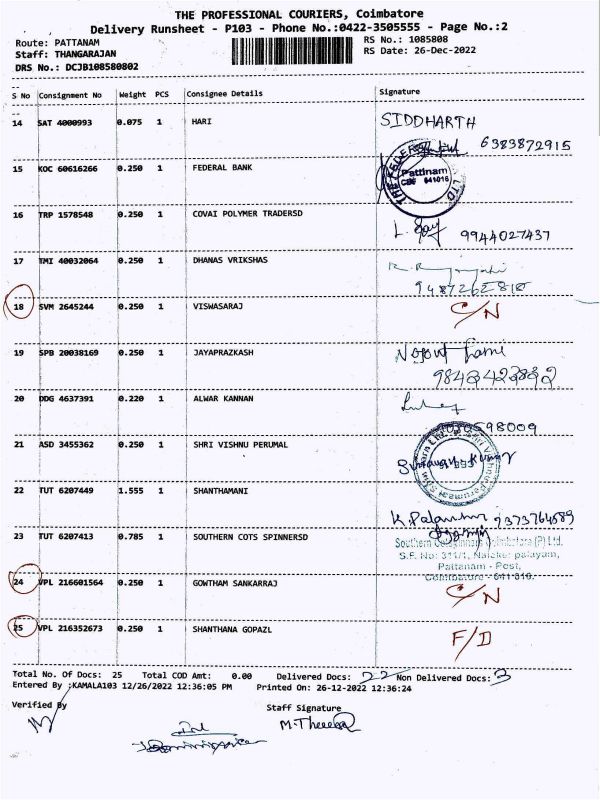 THE PROFESSIONAL COURIERS, Coimbatore
Delivery Runsheet - P103 - Phone No.:0422-3505555 - Page No.:2
Route: PATTANAM RS No.: 1085808
Staff: THANGARAJAN RS Date: 26-Dec-2022
DRS No.: DCJB108580802
S No Consignment No Weight PCS Consignee Details Signature
14 SAT 4000993 0.075 1 HARI SIDDHARTH
6383872915
15 KOC 60616266 0.250 1 FEDERAL BANK Pattinam
CBE 641016
16 TRP 1578548 0.250 1 COVAI POLYMER TRADERSD
9944027437
17 TMI 40032064 0.250 1 DHANAS VRIKSHAS
18 SVM 2645244 0.250 1 VISWASARAJ C/N
19 SPB 20038169 0.250 1 JAYAPRAZKASH
20 DDG 4637391 0.220 1 ALWAR KANNAN
21 ASD 3455362 0.250 1 SHRI VISHNU PERUMAL
22 TUT 6207449 1.555 1 SHANTHAMANI
23 TUT 6207413 0.785 1 SOUTHERN COTS SPINNERSD
S.F. No: 311/1, Naicker palayam,
Pattanam - Post,
Coimbatore - 641 016.
24 VPL 216601564 0.250 1 GOWTHAM SANKARRAJ C/N
25 VPL 216352673 0.250 1 SHANTHANA GOPAZL F/D
Total No. Of Docs: 25 Total COD Amt: 0.00 Delivered Docs: 22 Non Delivered Docs: 3
Entered By :KAMALA103 12/26/2022 12:36:05 PM Printed On: 26-12-2022 12:36:24
Verified By Staff Signature